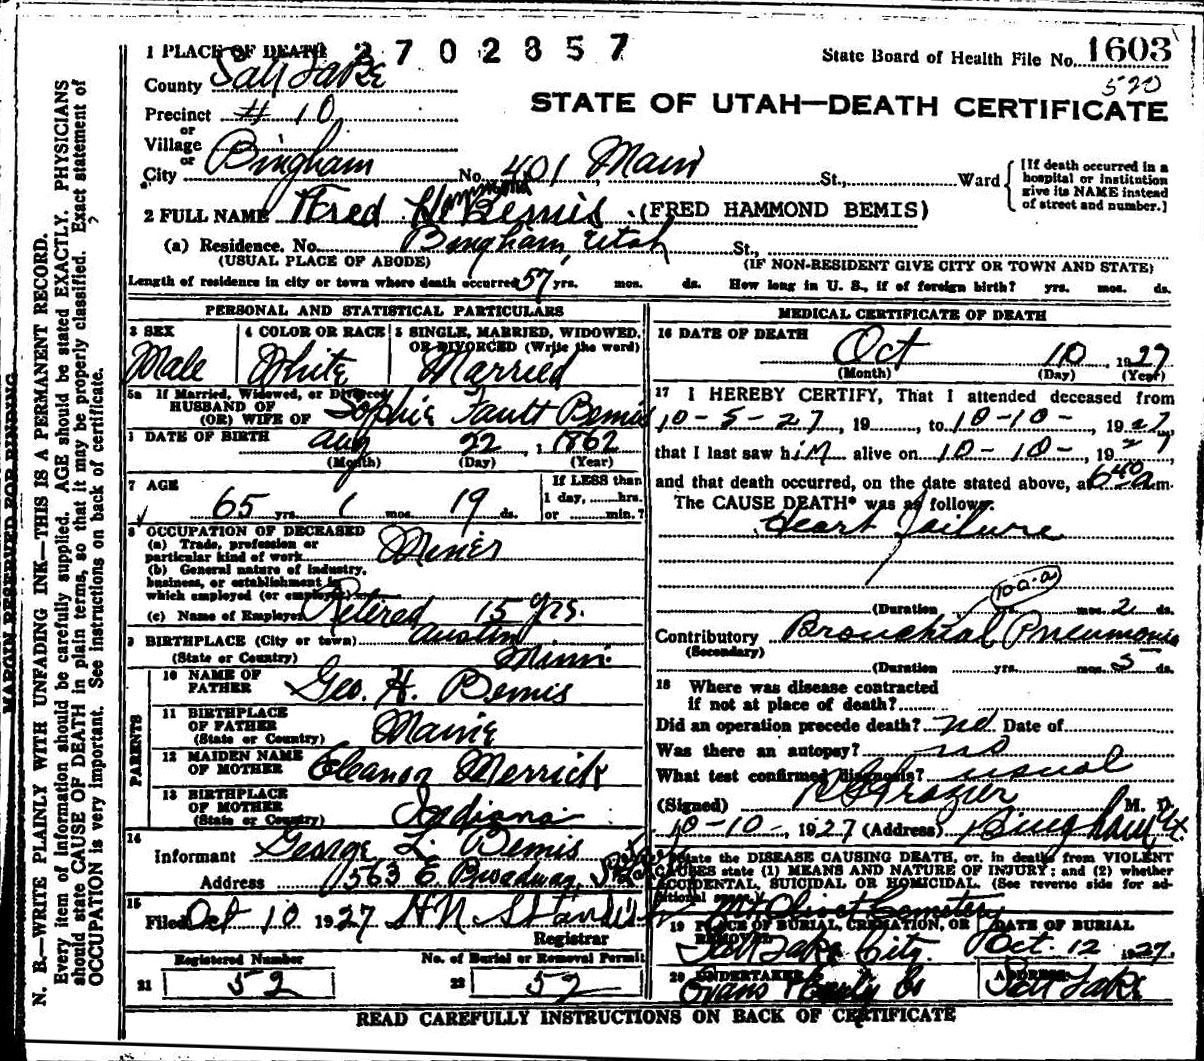 1 PLACE OF DEATH 2702857
State Board of Health File No. 1603
520
County Salt Lake
STATE OF UTAH—DEATH CERTIFICATE
Precinct # 10
or
Village
or
City Bingham No. 401 Main St., Ward
[If death occurred in a hospital or institution give its NAME instead of street and number.]
2 FULL NAME Fred Hammond Bemis (FRED HAMMOND BEMIS)
(a) Residence. No. Bingham, Utah St.,
(USUAL PLACE OF ABODE) (IF NON-RESIDENT GIVE CITY OR TOWN AND STATE)
Length of residence in city or town where death occurred 57 yrs. mos. ds. How long in U. S., if of foreign birth? yrs. mos. ds.
PERSONAL AND STATISTICAL PARTICULARS
3 SEX 4 COLOR OR RACE 5 SINGLE, MARRIED, WIDOWED, OR DIVORCED (Write the word)
Male White Married
5a If Married, Widowed, or Divorced
HUSBAND OF
(OR) WIFE OF Sophie Bemis
DATE OF BIRTH Aug 22, 1862
(Month) (Day) (Year)
7 AGE If LESS than
65 yrs. 1 mos. 19 ds. 1 day, hrs.
or min.?
8 OCCUPATION OF DECEASED
(a) Trade, profession or
particular kind of work Miner
(b) General nature of industry,
business, or establishment in
which employed (or employer)
(c) Name of Employer Retired 15 yrs.
9 BIRTHPLACE (City or town) Austin
(State or Country) Minn.
PARENTS
10 NAME OF
FATHER Geo. H. Bemis
11 BIRTHPLACE
OF FATHER
(State or Country) Maine
12 MAIDEN NAME
OF MOTHER Eleanor Merrick
13 BIRTHPLACE
OF MOTHER
(State or Country) Indiana
14
Informant George L. Bemis
Address 563 E Broadway,
15
Filed Oct 10 1927 H.N. Standish
Registrar
Registered Number No. of Burial or Removal Permit
21 52 22 52
MEDICAL CERTIFICATE OF DEATH
16 DATE OF DEATH
Oct 10, 1927
(Month) (Day) (Year)
17 I HEREBY CERTIFY, That I attended deceased from
10-5-27, 19 , to 10-10-, 1927,
that I last saw him alive on 10-10-, 1927
and that death occurred, on the date stated above, at 6 40 a m.
The CAUSE DEATH* was as follows:
Heart Failure
100-a
(Duration yrs. mos. 2 ds.
Contributory Bronchial Pneumonia
(Secondary)
(Duration yrs. mos. 5 ds.
18 Where was disease contracted
if not at place of death?
Did an operation precede death? no Date of
Was there an autopsy? no
What test confirmed diagnosis? usual
(Signed) Frazier M. D.
10-10-, 1927 (Address) Bingham Ut
State the DISEASE CAUSING DEATH, or, in deaths from VIOLENT
CAUSES state (1) MEANS AND NATURE OF INJURY; and (2) whether
ACCIDENTAL, SUICIDAL OR HOMICIDAL. (See reverse side for ad-
ditional space.)
Mt Olivet Cemetery
19 PLACE OF BURIAL, CREMATION, OR REMOVAL DATE OF BURIAL
Salt Lake City. Oct. 12 1927
20 UNDERTAKER ADDRESS
Evans & Early Co Salt Lake
READ CAREFULLY INSTRUCTIONS ON BACK OF CERTIFICATE
MARGIN RESERVED FOR BINDING
N. B.—WRITE PLAINLY WITH UNFADING INK—THIS IS A PERMANENT RECORD.
Every item of information should be carefully supplied. AGE should be stated EXACTLY. PHYSICIANS
should state CAUSE OF DEATH in plain terms, so that it may be properly classified. Exact statement of
OCCUPATION is very important. See instructions on back of certificate.